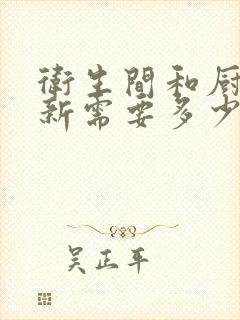 衛生間和厨
新需要多少
吴正平